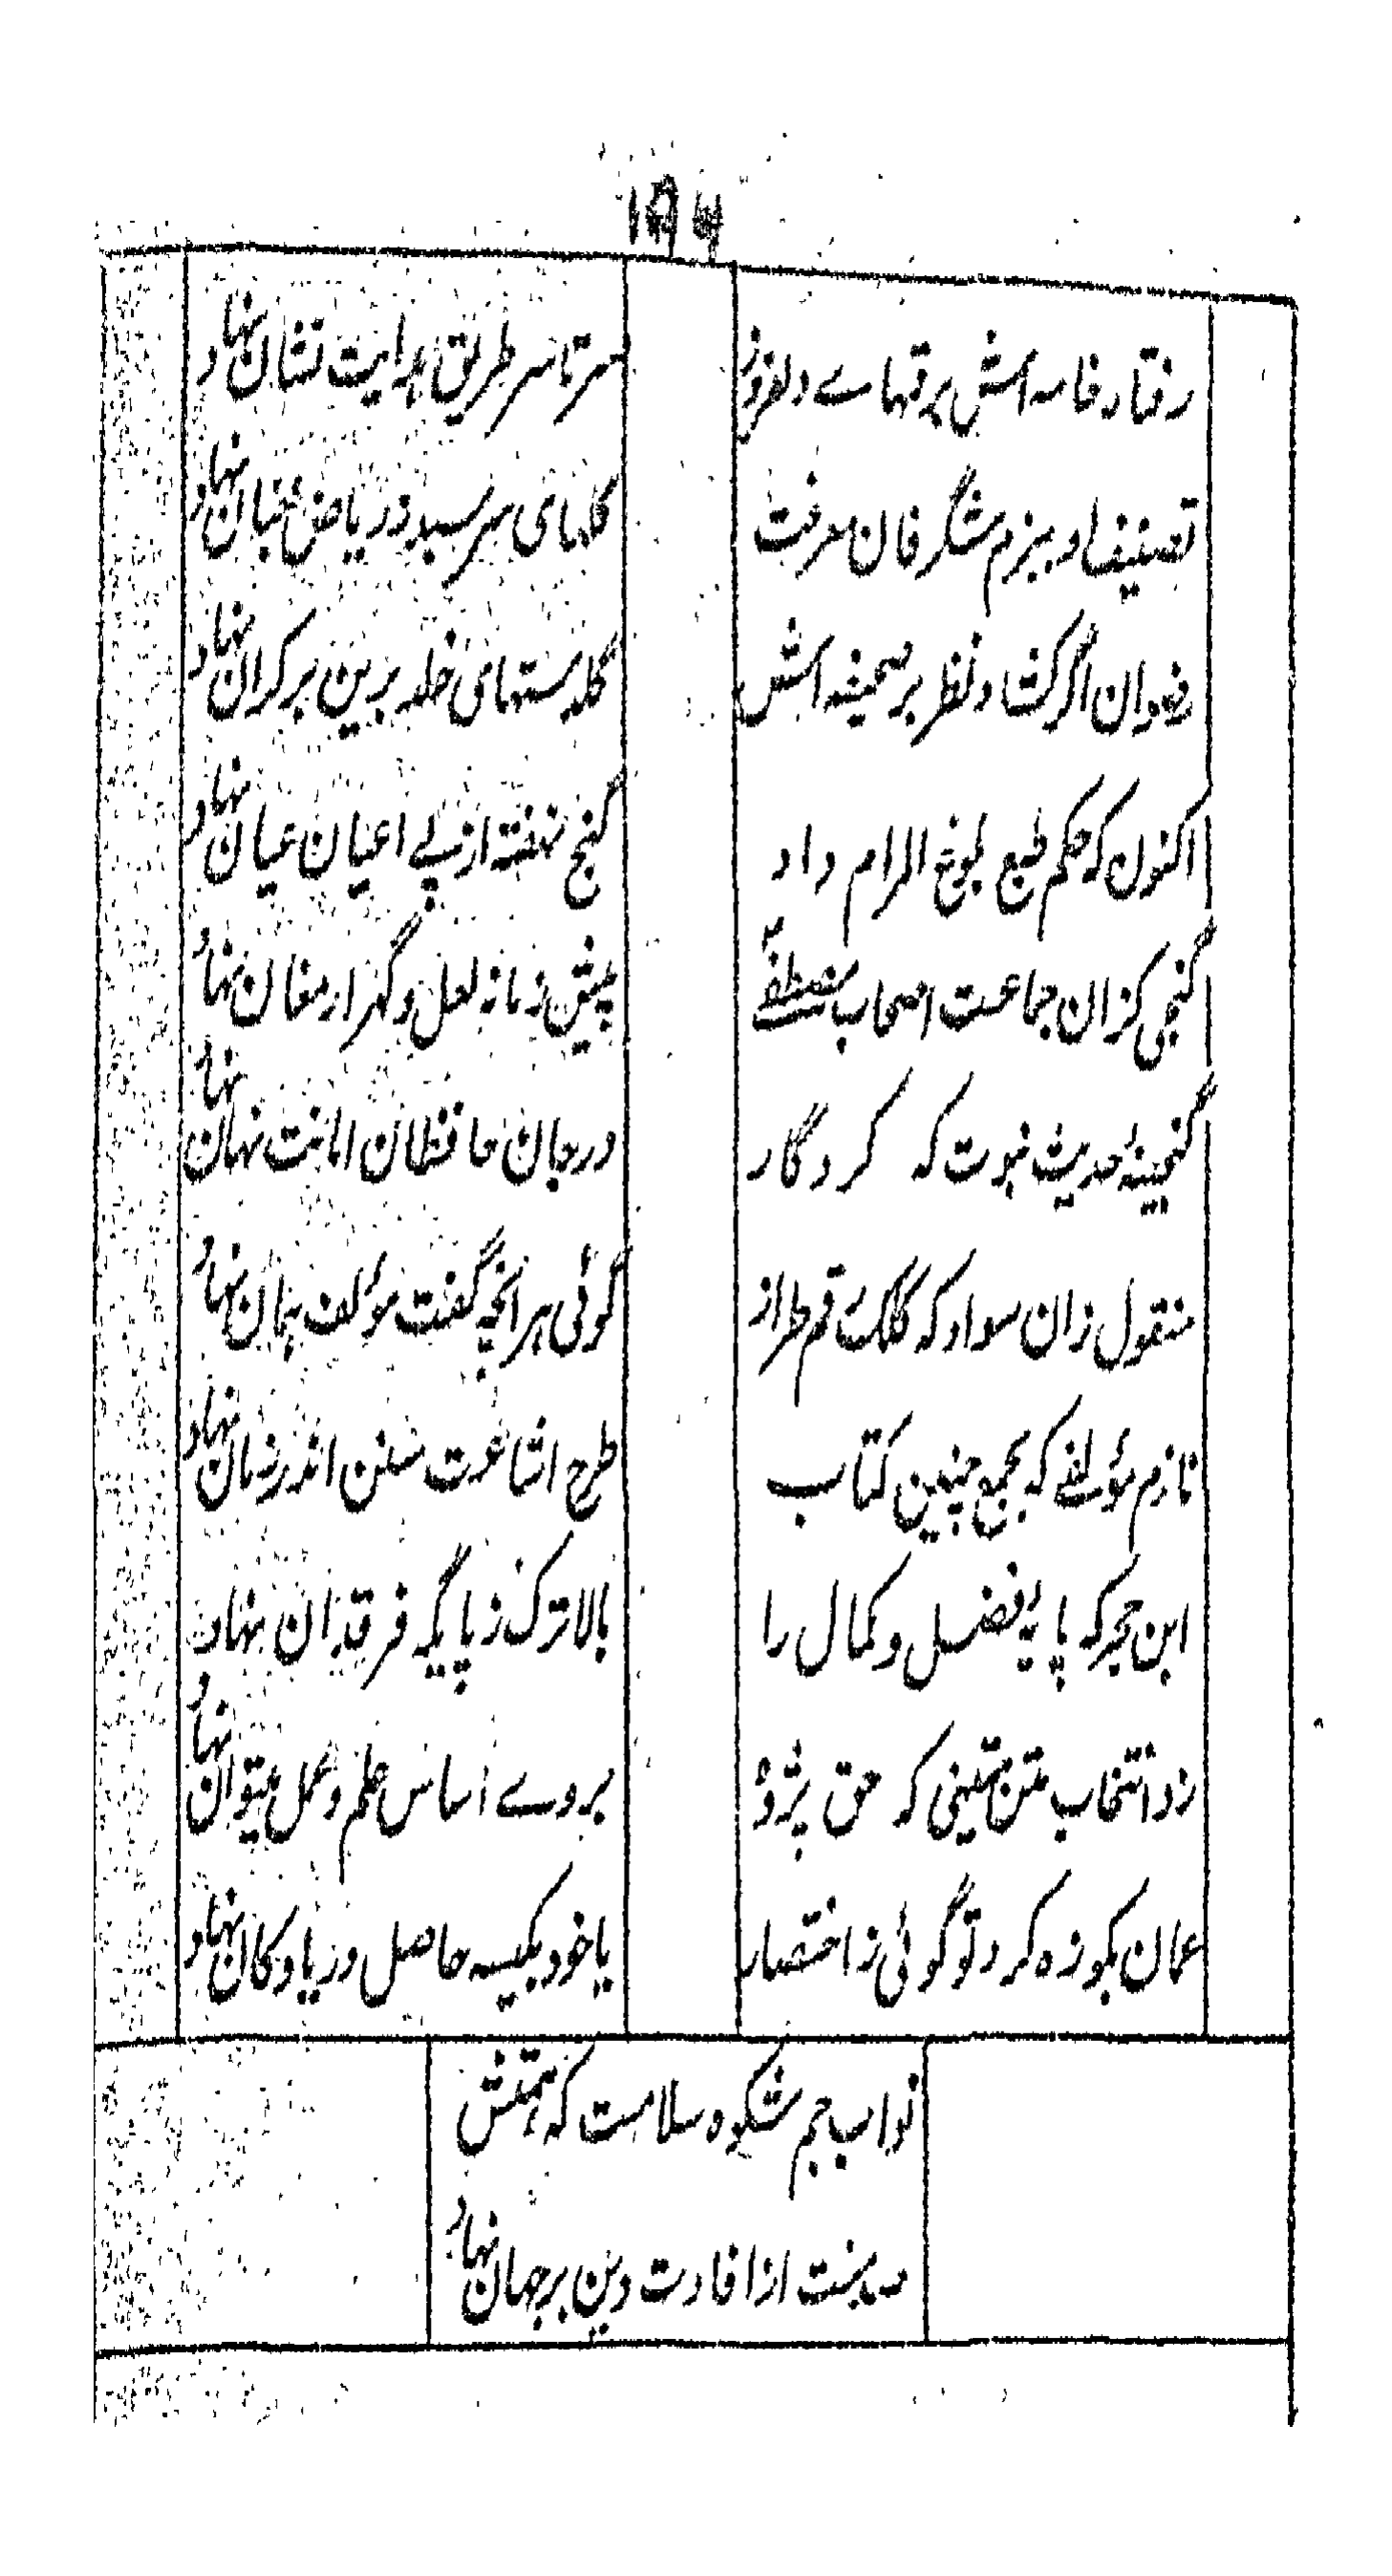 ۱۹۶
رفتار خامه اش برقهاے دلفروز سرتاسر طریق ہدایت نشان نہاد
تصنیف او ببزم شگرفان معرفت گلہای سرسبد در ریاض جنان نہاد
رضوان اگر کشاد نظر بر صحیفه اش گلدستہای خلد برین بر کران نہاد
اکنون کہ حکم طبع بلوغ المرام داد گنج نہفتہ از پے اعیان عیان نہاد
گنجی کزان جماعت اصحاب مصطفےٰ پیش زمانہ لعل و گہر ارمغان نہاد
گنجینۂ حدیث نبوت کہ کردگار در جان حافظان امانت نہان نہاد
منقول زان سواد کہ کلک رقم طراز گوئی ہر آنچہ گفت مؤلف ہمان نہاد
نازم مؤلفے کہ بجمع چنین کتاب طرح اشاعت سنن اندر زمان نہاد
ابن حجر کہ پایۂ فضل و کمال را بالاترک ز پایگہ فرقدان نہاد
زد انتخاب متن متینی کہ حق پژوہ بروے اساس علم و عمل میتوان نہاد
عمان بکوزہ کرد تو گوئی ز اختصار یا خود بکیسہ حاصل دریا و کان نہاد
نواب جم شکوہ سلامت کہ ہمتش
منت از افادت دین بر جہان نہاد